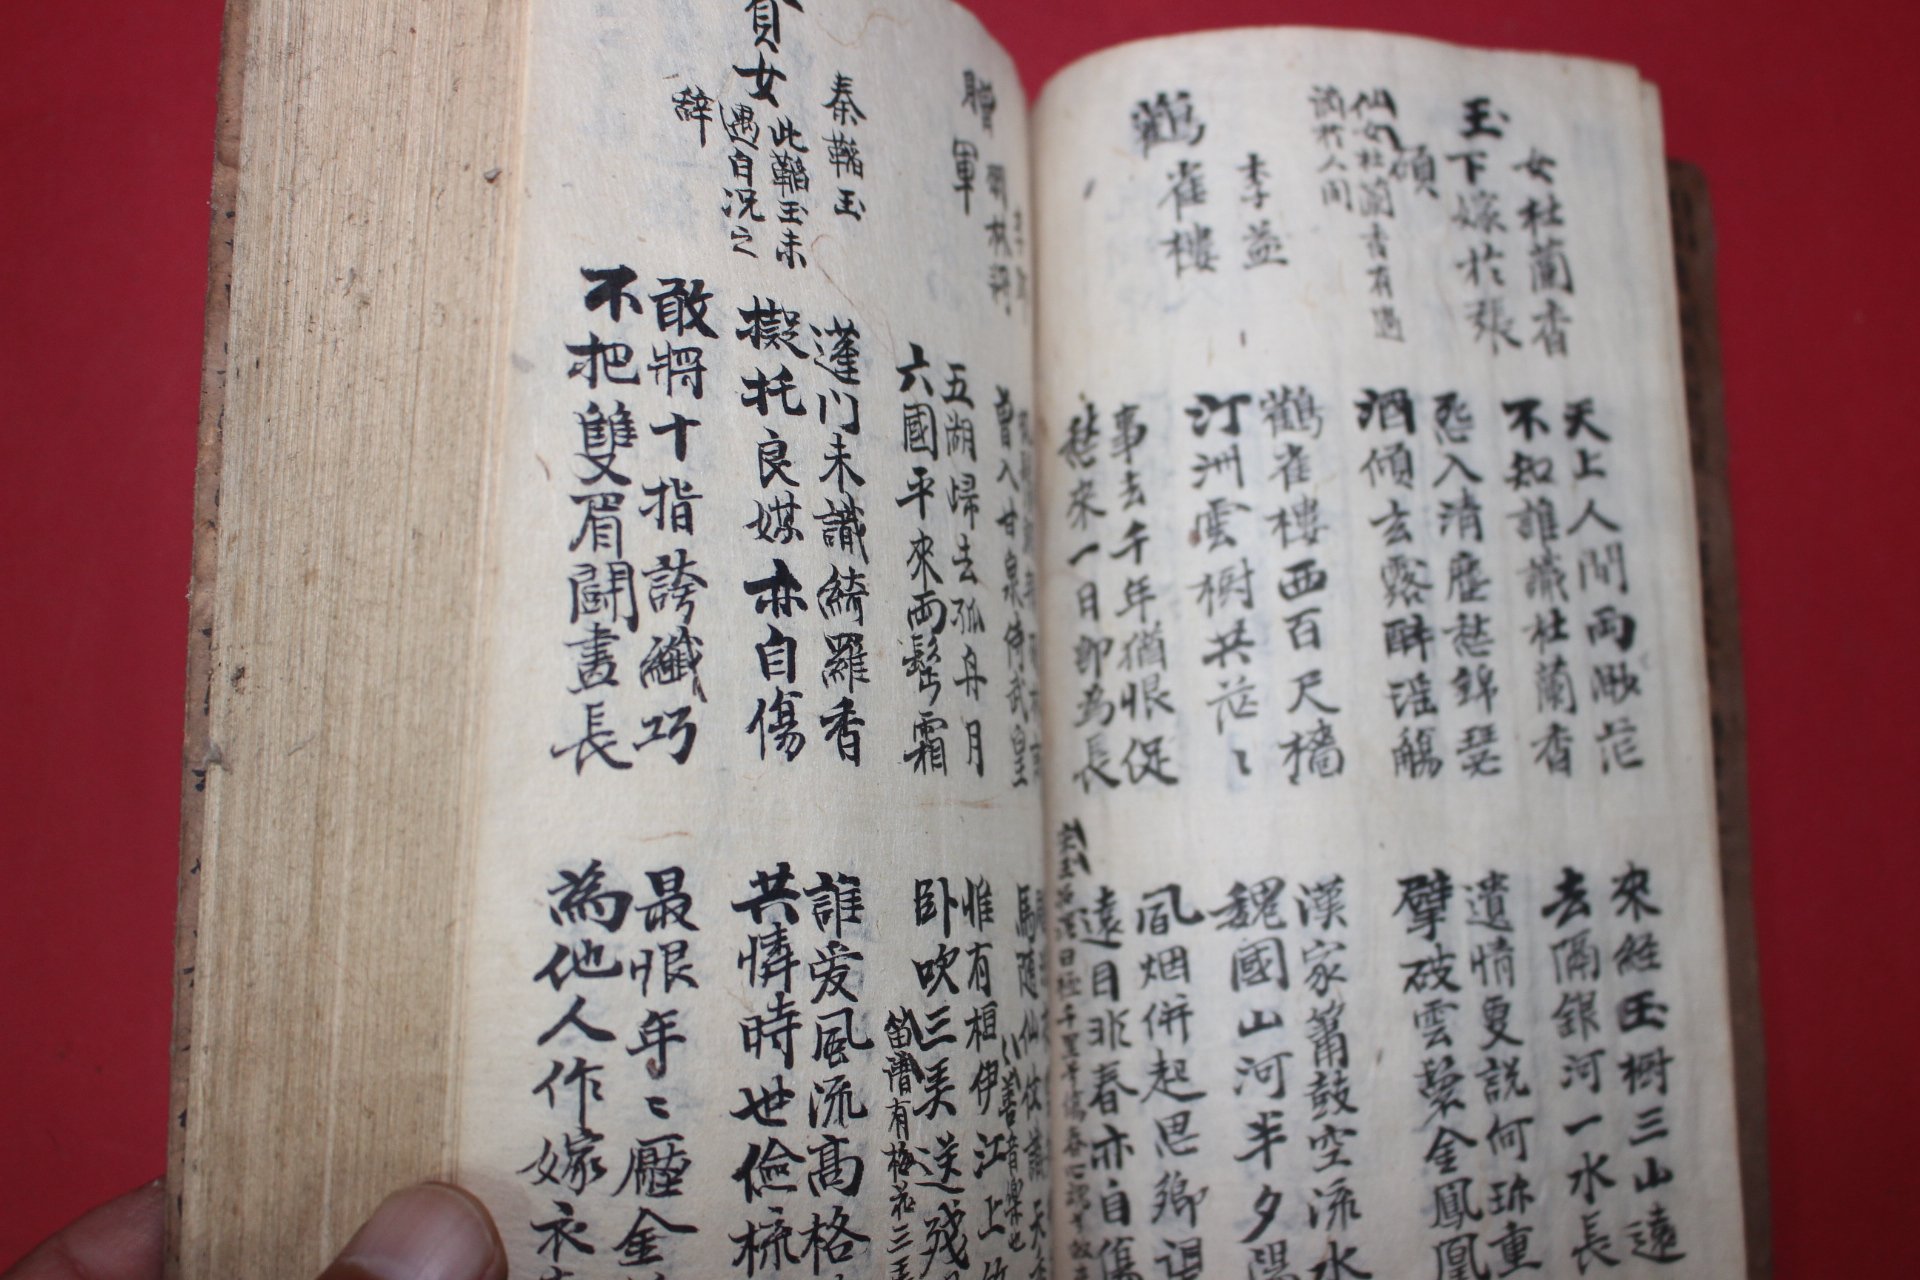 女杜蘭香
玉下嫁於張
碩
仙女杜蘭香有過
謫於人間
天上人間兩渺茫
不知誰識杜蘭香
來經玉樹三山遠
去隔銀河一水長
怨入清塵愁錦瑟
酒傾玄露醉瑤觴
遺情更說何珎重
擘破雲鬟金鳳凰
李益
鸛雀樓
鸛雀樓西百尺檣
汀洲雲樹共茫〻
漢家簫鼓空流水
魏國山河半夕陽
事去千年猶恨促
愁來一日即為長
風烟併起思鄉望
遠目非春亦自傷
贈
軍
曾入甘泉侍武皇
馬隨仙仗識天
五湖歸去孤舟月
六國平來兩鬢霜
惟有桓伊江上
善音樂也
臥吹三美送殘
笛譜有梅花三
秦韜玉
貧女
此韜玉未
遇自況之
辞
蓬門未識綺羅香
擬托良媒亦自傷
誰爱風流高格
共憐時世儉梳
敢將十指誇纖巧
不把雙眉鬪畫長
最恨年〻壓金
為他人作嫁衣